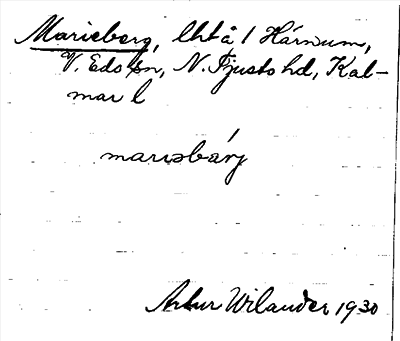 Marieberg, lht å 1 Härnum,
V. Eds sn, N. Tjusts hd, Kal-
mar l
marɩəbärj
Artur Wilander 1930